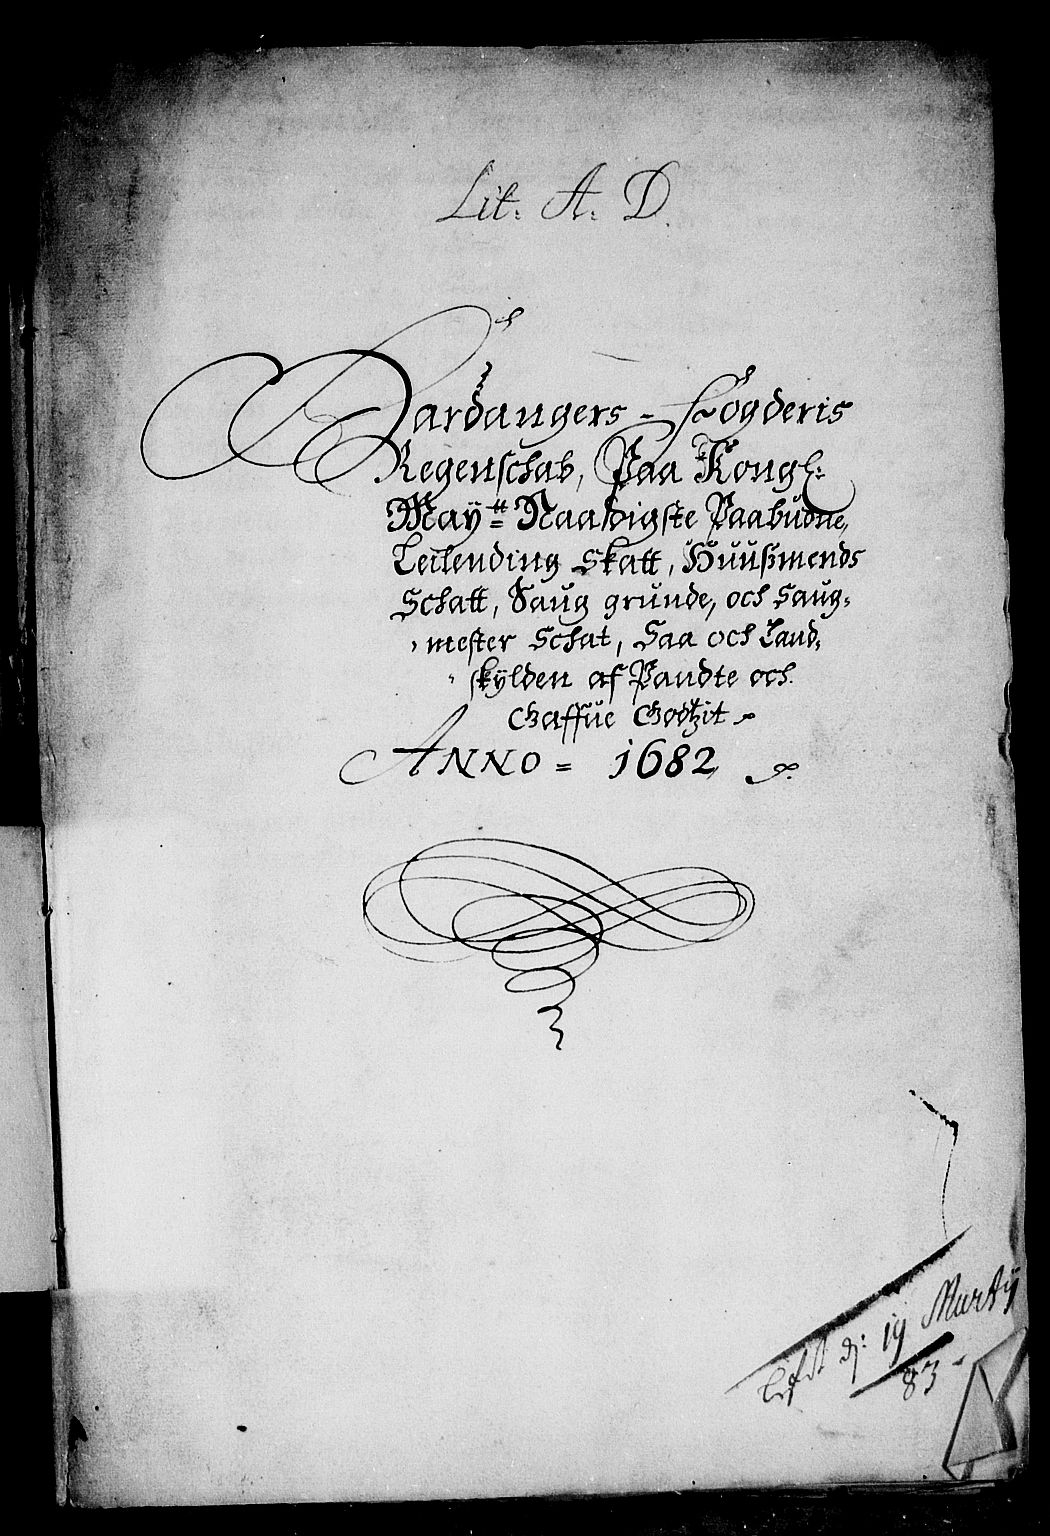 Lit: A: D.
Hardangers - Fögderis
Regenschab, Paa Kongl:
Maÿtt= Naadigste Paabudne,
Leilending Skatt, Huußmends
Schatt, Saug grunde, och Saug-
mester Schat, Saa och Land-
skÿlden af Pandte och
Gaffue Godtzit
ANNO = 1682
19 Martÿ
83